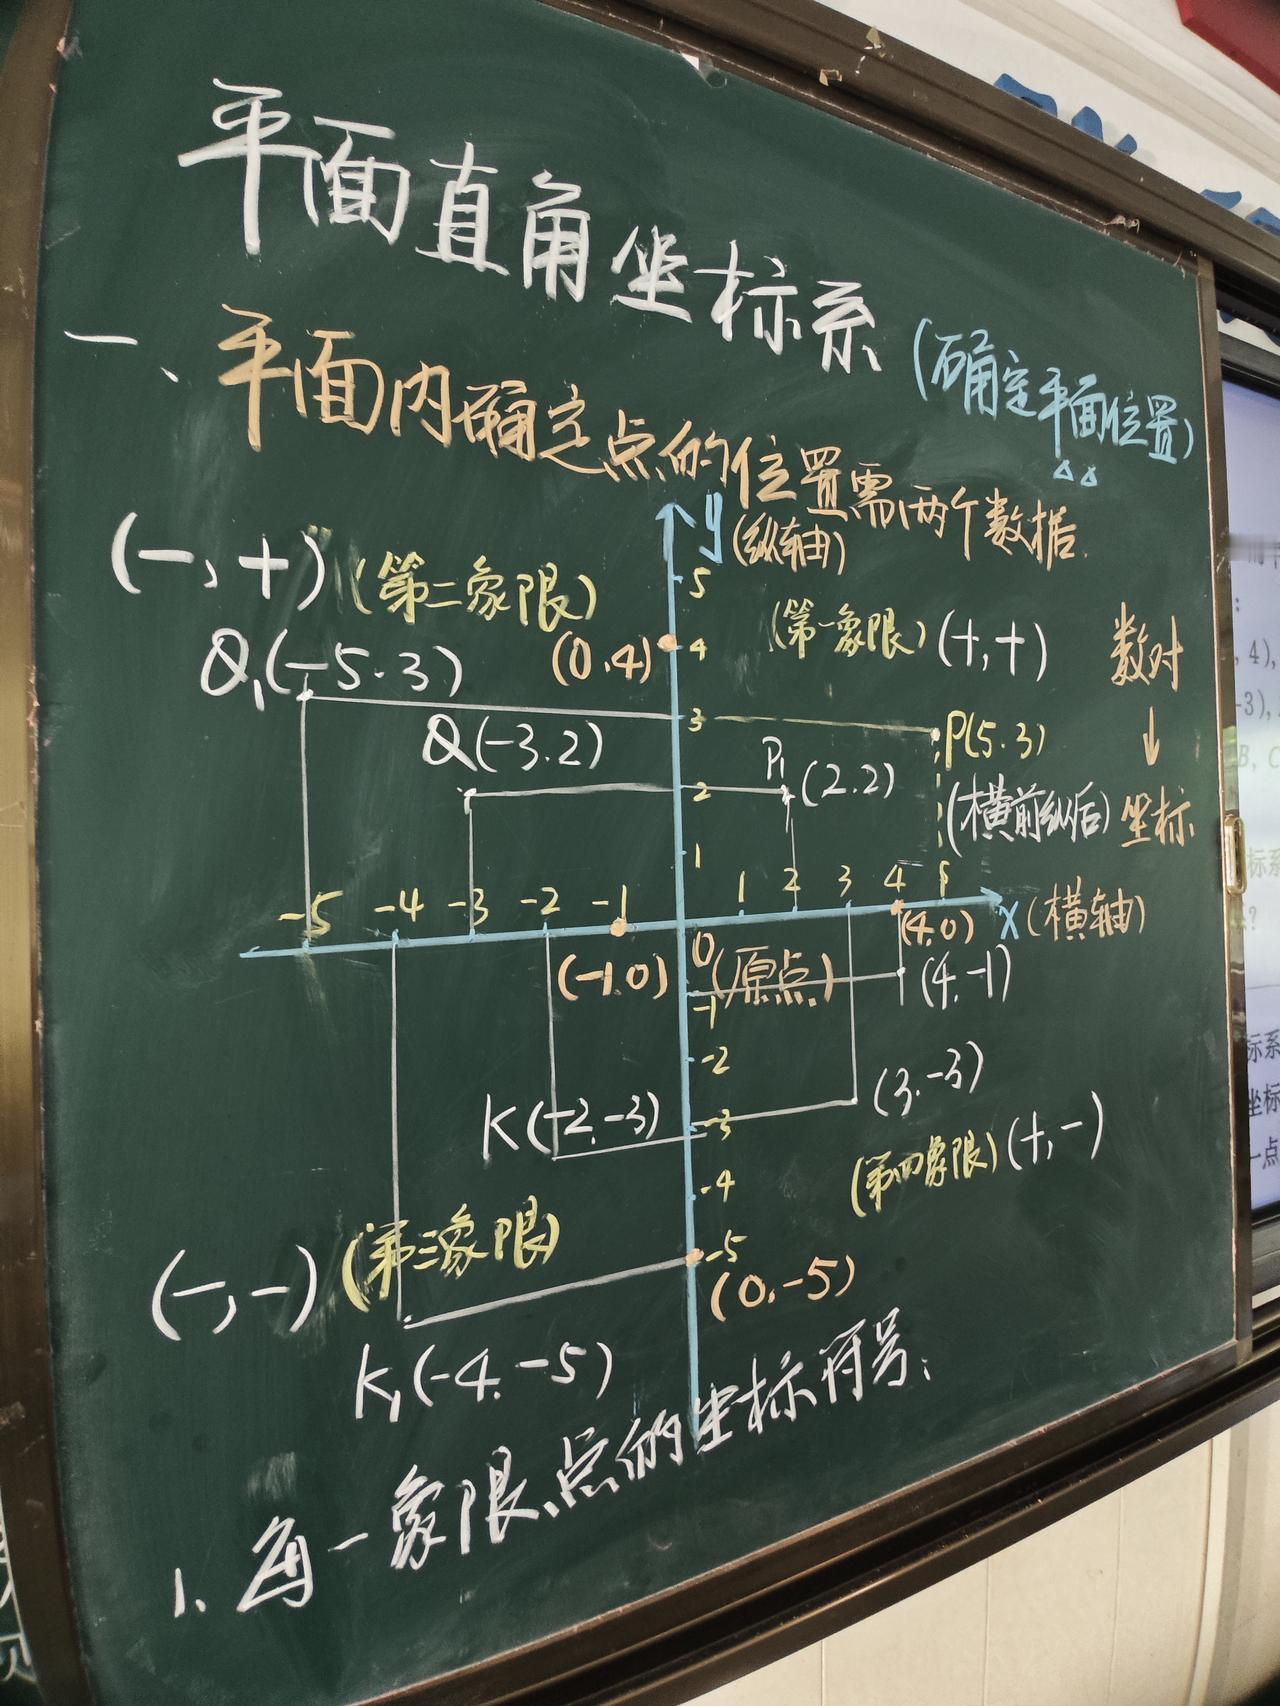 平面直角坐标系
(确定平面位置)
一、平面内确定点的位置需两个数据.
y
(纵轴)
(-,+)
(第二象限)
5
(第一象限)
(+,+)
数对
Q₁(-5.3)
(0.4)
4
3
P(5.3)
↓
Q(-3.2)
P₁
(2.2)
2
(横前纵后)
坐标
1
-5 -4 -3 -2 -1
1 2 3 4 5
x (横轴)
(-1.0)
0
(原点)
(4.0)
(4.-1)
-1
-2
(3.-3)
K(-2.-3)
-3
(第四象限)
(+,-)
-4
(第三象限)
(-,-)
-5
(0.-5)
K₁(-4.-5)
1. 每一象限点的坐标符号:
4),
-3),
B, C
标系
?
标系
坐标
一点